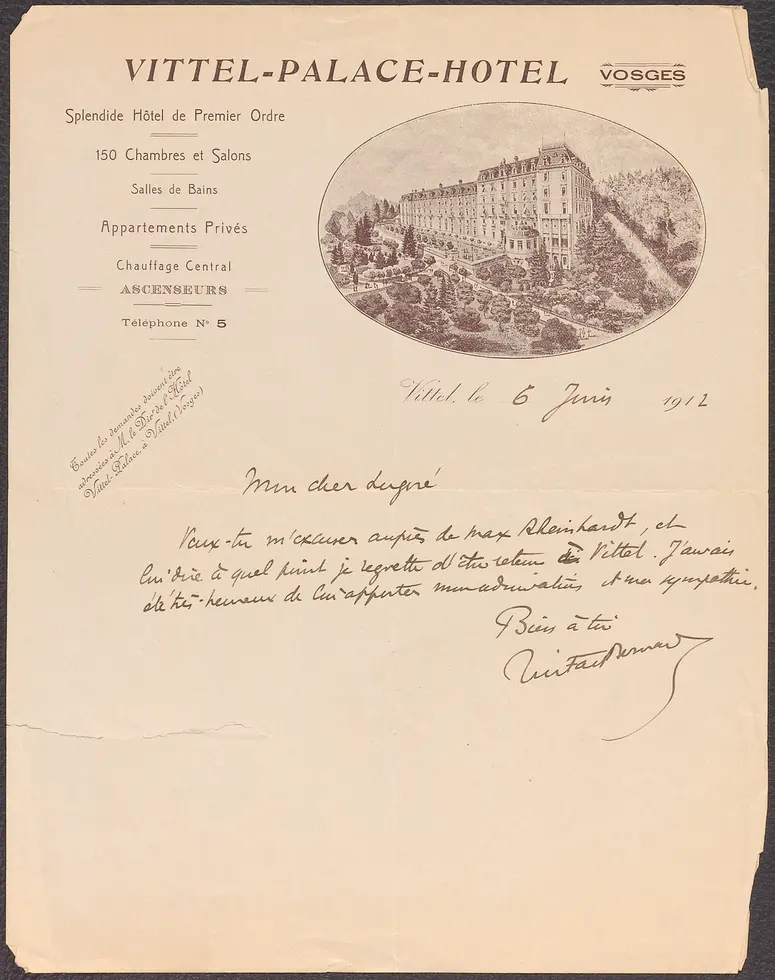 VITTEL-PALACE-HOTEL VOSGES
Splendide Hôtel de Premier Ordre
150 Chambres et Salons
Salles de Bains
Appartements Privés
Chauffage Central
ASCENSEURS
Téléphone Nº 5
Toutes les demandes doivent être
adressées à M. le Dirʳ de l'Hôtel
Vittel-Palace, à Vittel (Vosges)
Vittel, le 6 Juin 1912
Mon cher Lugné
Veux-tu m'excuser auprès de Max Rheinhardt, et
lui dire à quel point je regrette d'être retenu à Vittel. J'aurais
été très-heureux de lui apporter mon admiration et ma sympathie.
Bien à toi
Tristan Bernard